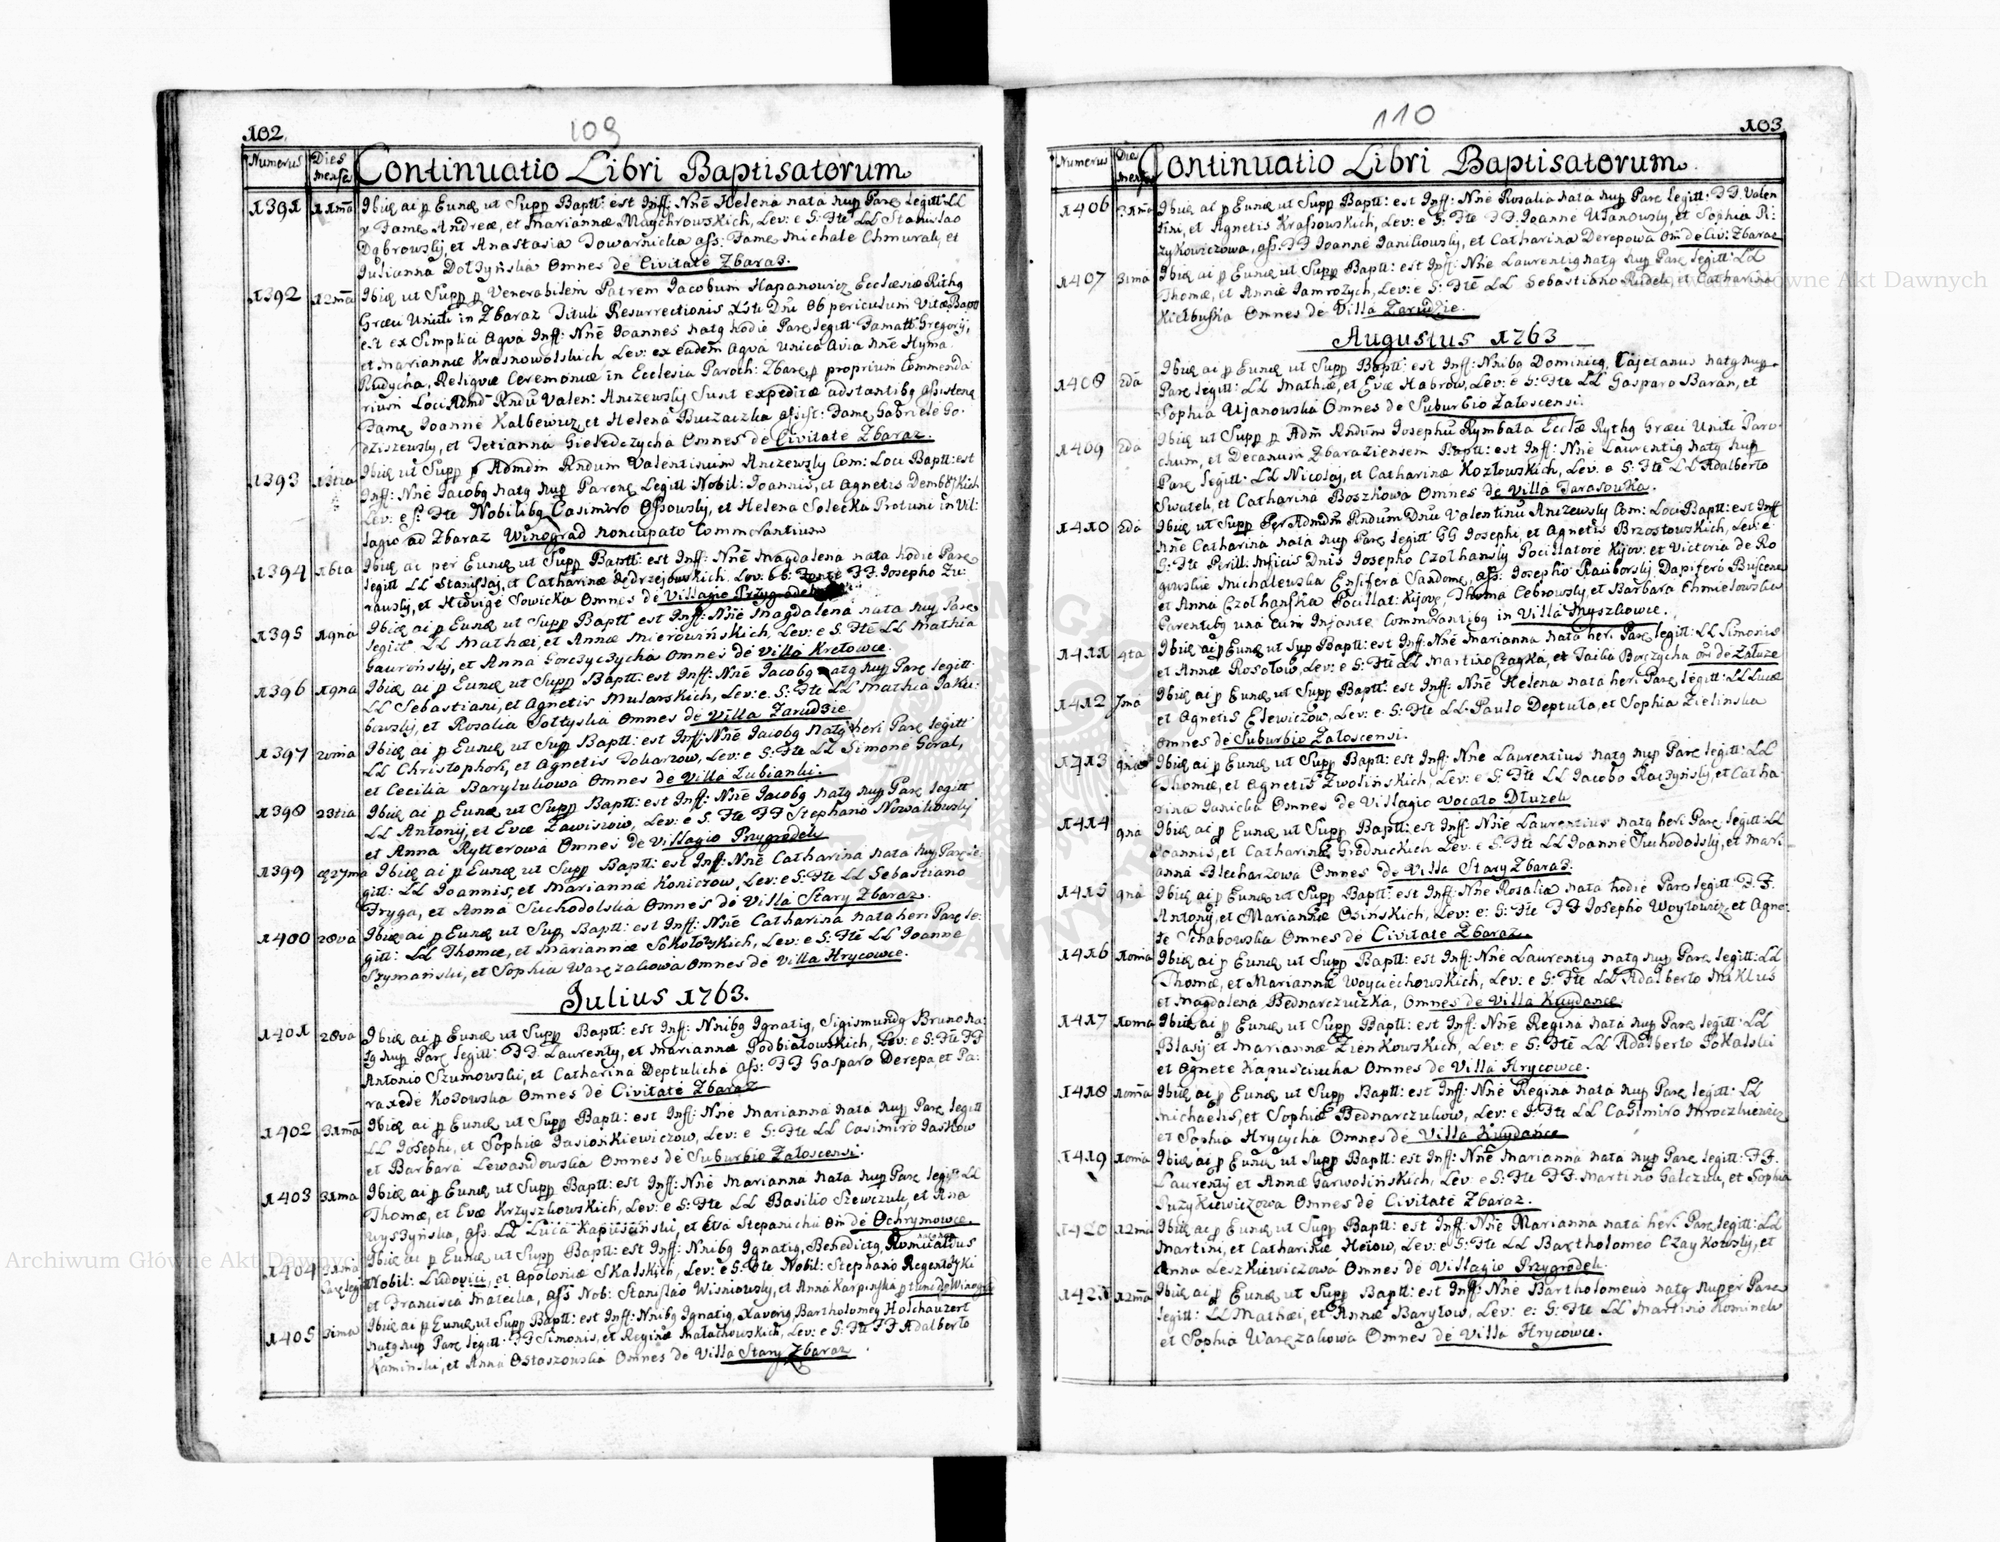 102.
109
Numerus
Dies mense
Continuatio Libri Baptisatorum
1391 11ma Ibidē ai p Eundē ut Supp Baptt: est Inff: Nnē Helena nata nup Parē legitt LL
v Famē Andreæ, et Mariannæ Maychrowskich, Lev: e S: Fte LL Stanislao
Dąbrowsky, et Anastasia Towarnicka ass: Famē Michale Chmuraly, et
Julianna Dołżyńska Omnes de Civitate Zbaraz.
1392 12ma Ibidē ut Supp p Venerabilem Patrem Jacobum Hapanowicz Ecclæsiæ Rithg
Græci Uniti in Zbaraz Tituli Resurrectionis Xsti Dni Ob periculum Vitæ Baptt
est ex Simplici Aqva Inff: Nnē Joannes natg hodie Parē legitt: Famatt Gregorij,
et Mariannæ Krasnowolskich Lev: ex eadem Aqva Unica Avia Nnē Hyma
Rudycha, Reliqvæ Ceremoniæ in Ecclesia Paroch: Zbarē p proprium Commenda
rium Loci Admd Rndu Valen: Anczewsky Sunt expeditæ adstantibg assistenē
Famē Joanne Kalbewicz, et Helena Buczaczka assist: Famē Gabriele Go-
dziszewsky, et Tetianna Gieledczycha Omnes de Civitate Zbaraz.
1393 13tia Ibidē ut Supp p Admdm Rndum Valentinum Anczewsky Com: Loci Baptt: est
Inff: Nnē Jacobg natg nup Parenē Legitt Nobil: Joannis, et Agnetis Dembskich
Lev: e S: Fte Nobilibg Casimiro Ossowsky, et Helena Solecka Protunc in Vil-
lagio ad Zbaraz Winograd noncupato Commorantium
1394 16ta Ibidē ai per Eundē ut Supp Baptt: est Inff: Nnē Magdalena nata hodie Parē
legitt LL Stanislaj, et Catharinæ Jędrzejowskich. Lev: e S: Fonte FF Josepho Zu-
rawsky, et Hedvige Sowicka Omnes de Villagio Przygrodek
1395 19na Ibidē ai p Eundē ut Supp Baptt est Inff: Nnē Magdalena nata nup Parē
legitt: LL Mathæi, et Annæ Mierowińskich, Lev: e S: Fte LL Mathia
Gawrońsky, et Anna Gorczyczycha Omnes de Villa Kretowce.
1396 19na Ibidē ai p Eundē ut Supp Baptt: est Inff: Nnē Jacobg natg nup Parē legitt:
LL Sebastiani, et Agnetis Mularskich, Lev: e S: Fte LL Mathia Jaku-
bowsky, et Rosalia Sołtyska Omnes de Villa Zarudzie
1397 20ma Ibidē ai p Eundē ut Supp Baptt: est Inff: Nnē Jacobg natg heri Parē legitt
LL Christophori, et Agnetis Tokarzow, Lev: e S: Fte LL Simone Goral,
et Cecilia Barytukowa Omnes de Villa Lubianki.
1398 23tia Ibidē ai p Eundē ut Supp Baptt: est Inff: Nnē Jacobg natg nup Parē legitt
LL Antonij, et Evæ Zawiszow, Lev: e S: Fte FF Stephano Nowakowsky
et Anna Rytterowa Omnes de Villagio Przygrodek
1399 27ma Ibidē ai p Eundē ut Supp Baptt: est Inff: Nnē Catharina nata nup Parē le-
gitt: LL Joannis, et Mariannæ Koniczow, Lev: e S: Fte LL Sebastiano
Fryga, et Anna Suchodolska Omnes de Villa Stary Zbaraz.
1400 28va Ibidē ai p Eundē ut Sup, Baptt: est Inff: Nnē Catharina nata heri Parē le-
gitt: LL Thomæ, et Mariannæ Sokołowskich, Lev: e S: Fte LL Joanne
Szymański, et Sophia Warężakowa Omnes de Villa Hrycowce.
Julius 1763.
1401 28va Ibidē ai p Eundē ut Supp Baptt: est Inff: Nnibg Ignatig, Sigismundg Bruno na-
tg nup Parē legitt: FF Laurenty, et Mariannæ Podbiatowskich, Lev: e S: Fte FF
Antonio Szumowski, et Catharina Deptulicha ass: FF Gasparo Derepa, et Pa-
raxede Kosowska Omnes de Civitate Zbaraz
1402 31ma Ibidē ai p Eundē ut Supp Baptt: est Inff: Nnē Marianna nata nup Parē legitt
LL Josephi, et Sophiæ Jasioskiewiczow, Lev: e S: Fte LL Casimiro Jaskow
et Barbara Lewandowska Omnes de Suburbio Załoscensi.
1403 31ma Ibidē ai p Eundē ut Supp Baptt: est Inff: Nnē Marianna nata nup Parē legitt LL
Thomæ, et Evæ Krzyszkowskich, Lev: e S: Fte LL Basilio Szewczuk, et Ana
Wyszyńska, ass: LL Luca Kapuscinski et Eva Stepanicha Om de Ochrymowce.
1404 31ma Ibidē ai p Eundē ut Supp Baptt: est Inff: Nnibg Ignatig, Benedictg, Romualdus
Parē legitt Nobil: Ludovici, et Apoloniæ Skalskich, Lev: e S: Fte Nobil: Stephano Regentowski
et Francisca Małecka, ass Nob: Stanislao Wisniowsky, et Anna Karpińska p tunc de Winograd
1405 31ma Ibidē ai p Eundē ut Supp Baptt: est Inff: Nnibg Ignatig, Xaverig, Bartholomeg Holchauzert
natg nup Parē legitt: FF Simonis, et Reginæ Małachowskich, Lev: e S: Fte FF Adalberto
Kaminski, et Anna Ostaszowska Omnes de Villa Stary Zbaraz
110
103
Numerus
Die mense
Continuatio Libri Baptisatorum.
1406 31ma Ibidē ai p Eundē ut Supp Baptt: est Inff: Nnē Rosalia nata nup Parē legitt: FF. Valen
tini, et Agnetis Krassowskich, Lev: e S: Fte FF. Joanne Ulanowsky, et Sophia Ri-
zykowiczowa, ass: FF Joanne Janikowsky, et Catharina Derepowa Om de Civ: Zbaraz
1407 31ma Ibidē ai p Eundē ut Supp Baptt: est Inff: Nnē Laurentig natg nup Parē legitt: LL
Thomæ, et Annæ Jamrozych, Lev: e S: Fte LL Sebastiano Rudek, et Catharina
Kiełbuska Omnes de Villa Zarudzie.
Augustus 1763
1408 2da Ibidē ai p Eundē ut Supp Baptt: est Inff: Nnibg Dominicg, Cajetanus natg nup
Parē legitt: LL Mathiæ, et Evæ Habrow, Lev: e S: Fte LL Gasparo Baran, et
Sophia Ujanowska Omnes de Suburbio Załoscensi.
1409 2da Ibidē ut Supp p Adm Rndum Josephu Rymbała Ecclæ Rythg Græci Uniti Paro-
chum, et Decanum Zbaraziensem Baptt: est Inff: Nnē Laurentig natg nup
Parē legitt: LL Nicolaj, et Catharinæ Kozłowskich, Lev: e S: Fte LL Adalberto
Swatek, et Catharina Boszkowa Omnes de Villa Tarasowka.
1410 2da Ibidē ut Supp Per Admdm Rndum Dnu Valentinu Anczewsky Com: Loci Baptt: est Inff
Nnē Catharina nata nup Parē legitt GG Josephi, et Agnetis Brzostowskich, Lev: e
S: Fte Perill: Mficis Dnis Josepho Czolhansky Pocillatore Kijov: et Victoria de Ro
gowskie Michalewska Ensifera Sandome, ass: Josepho Raciborsky Dapifero Buscenē
et Anna Czolhańska Pocillat: Kijovē, Thoma Cebrowsky, et Barbara Chmielowska
Parentibg una cum Infante Commorantibg in Villa Myszkowce.
1411 4ta Ibidē ai p Eundē ut Sup Baptt: est Inff: Nnē Marianna nata heri Parē legitt: LL Simonis
et Annæ Rosołow, Lev: e S: Fte LL Martino Czayka, et Tacila Borczycha om de Załuze
1412 7ma Ibidē ai p Eundē ut Supp Baptt: est Inff: Nnē Helena nata heri Parē legitt: LL Lucæ
et Agnetis Elewiczow, Lev: e S: Fte LL. Paulo Deptuła, et Sophia Zielinska
Omnes de Suburbio Załoscensi.
1713 9na Ibidē ai p Eundē ut Supp Baptt: est Inff: Nnē Laurentius natg nup Parē legitt: LL
Thomæ, et Agnetis Zwolińskich, Lev: e S: Fte LL Jacobo Raczyńsky, et Catha-
rina Janicka Omnes de Villagio vocato Dłużek
1414 9na Ibidē ai p Eundē ut Supp Baptt: est Inff: Nnē Laurentius natg heri Parē legitt: LL
Joannis, et Catharinæ Grodnickich Lev: e S: Fte LL Joanne Suchodolsky, et Mari-
anna Blecharzowa Omnes de Villa Stary Zbaraz.
1415 9na Ibidē ai p Eundē ut Supp Baptt: est Inff: Nnē Rosalia nata hodie Parē legitt: FF.
Antonij, et Mariannæ Osińskich, Lev: e: S: Fte FF Josepho Woytowicz, et Agne-
te Schabowska Omnes de Civitate Zbaraz.
1416 10ma Ibidē ai p Eundē ut Supp Baptt: est Inff: Nnē Laurentig natg nup Parē legitt: LL
Thomæ, et Mariannæ Woyciechowskich, Lev: e S: Fte LL Adalberto Miklus
et Magdalena Bednarczuczka, Omnes de Villa Kuydance.
1417 10ma Ibidē ai p Eundē ut Supp Baptt: est Inff: Nnē Regina nata nup Parē legitt: LL
Blasij et Mariannæ Zienkowskich, Lev: e S: Fte LL Adalberto Pokalski
et Agnete Kapusciucha Omnes de Villa Hrycowce.
1418 10ma Ibidē ai p Eundē ut Supp Baptt: est Inff: Nnē Regina nata nup Parē legitt: LL
Michaelis, et Sophiæ Bednarczukow, Lev: e S: Fte LL Casimiro Mroczkiewicz
et Sophia Hrycycha Omnes de Villa Kuydance
1419 10ma Ibidē ai p Eundē ut Supp Baptt: est Inff: Nnē Marianna nata nup Parē legitt: FF.
Laurenty et Annæ Garwolińskich, Lev: e S: Fte FF. Martino Galczuk, et Sophia
Puzykiewiczowa Omnes de Civitate Zbaraz.
1420 12ma Ibidē ai p Eundē ut Supp Baptt: est Inff: Nnē Marianna nata heri Parē legitt: LL
Martini, et Catharinæ Hoiow, Lev: e S: Fte LL Bartholomeo Czaykowsky, et
Anna Leszkiewiczowa Omnes de Villagio Przygrodek.
1421 12ma Ibidē ai p Eundē ut Supp Baptt: est Inff: Nnē Bartholomeus natg nuper Parē
legitt: LL Mathæi, et Annæ Baryłow, Lev: e: S: Fte LL Martino Kominek
et Sophia Warężakowa Omnes de Villa Hrycowce.
Archiwum Główne Akt Dawnych